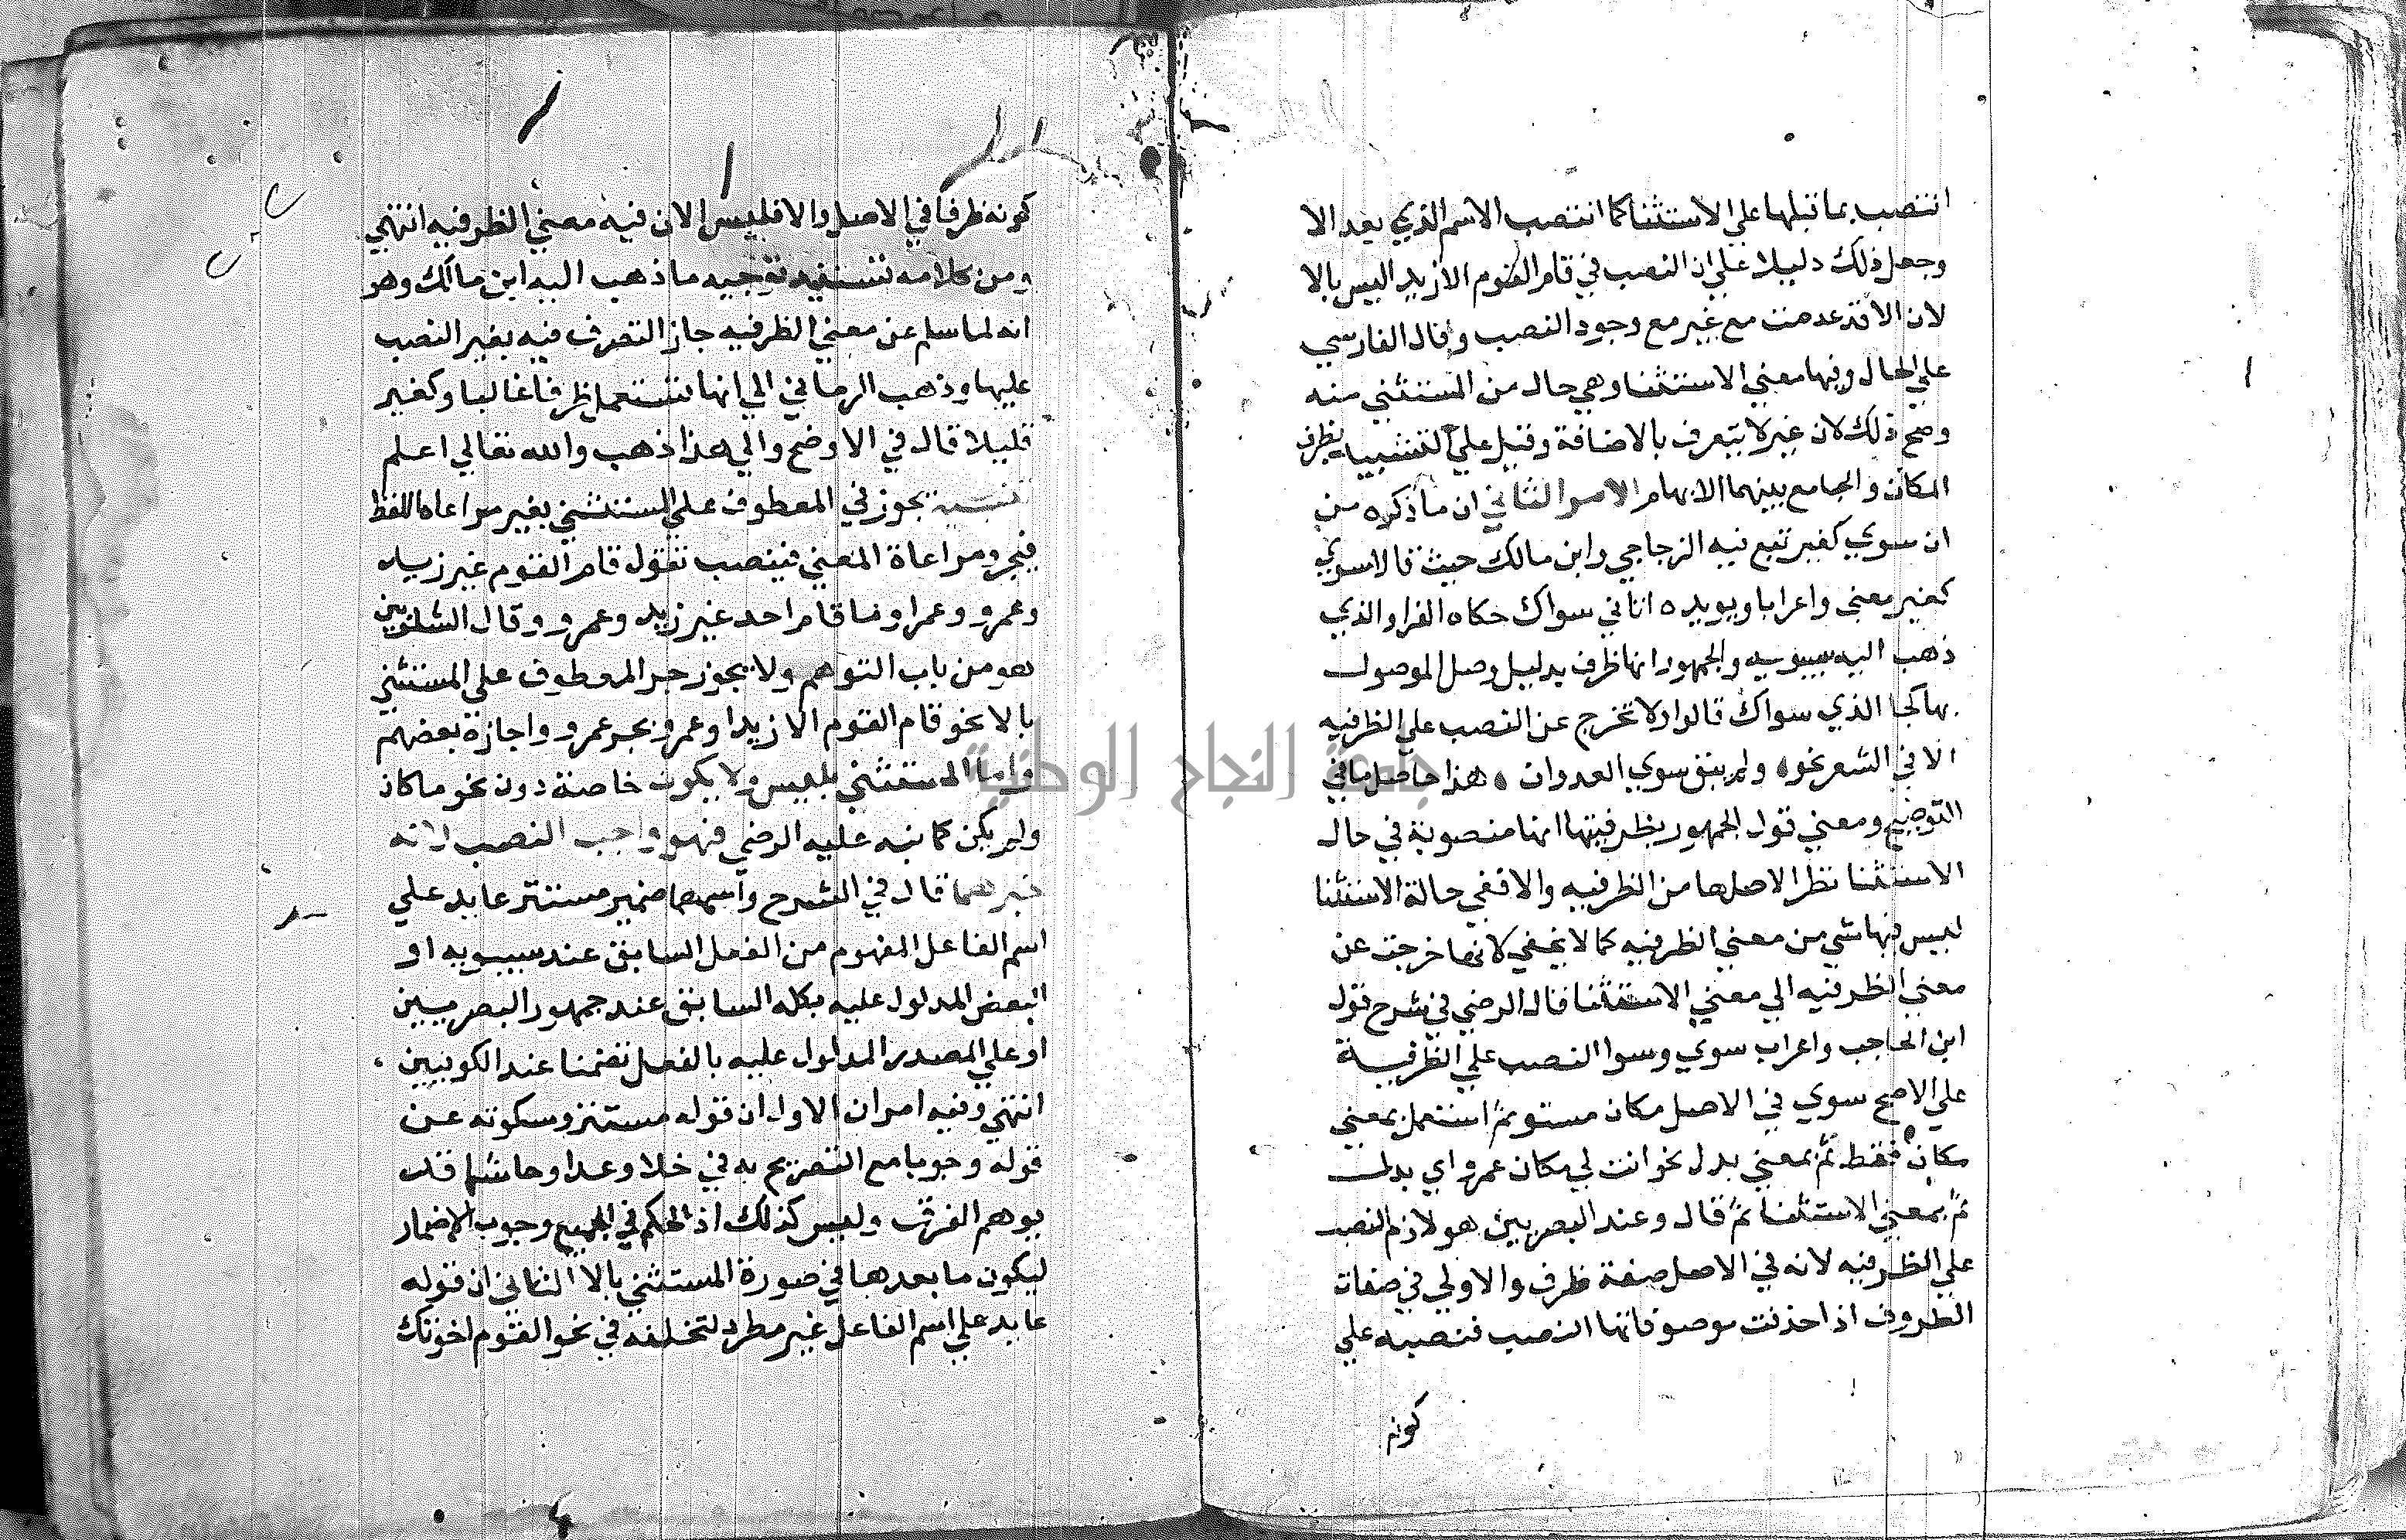 انتصب بما قبلها علي الاستثنا كما انتصب الاسم الذي بعد الا
وجعل ذلك دليلا علي ان النصب في قام القوم الا زيدا ليس بالا
لان الا قد عدمت مع غير مع وجود النصب وقال الفارسي
علي الحال وفيها معني الاستثنا وهي حال من المستثني منه
وصح ذلك لان غير لا يتعرف بالاضافة وقيل علي التشبيه بظرف
المكان والجامع بينهما الابهام الامر الثاني ان ما ذكره من
ان سوي كغير تبع فيه الزجاجي وابن مالك حيث قالا سوي
كغير معني واعرابا ويويده اتاني سواك حكاه الفرا والذي
ذهب اليه سيبويه والجمهور انها ظرف بدليل وصل الموصول
بها كجا الذي سواك قالوا ولا تخرج عن النصب علي الظرفيه
الا في الشعر نحوه ولم يبق سوي العدوان ٥ هذا حاصل ما في
التوضيح ومعني قول الجمهور بظرفيتها انها منصوبة في حال
الاستثنا نظرا لاصلها من الظرفيه والا ففي حالة الاستثنا
ليس فيها شي من معني الظرفيه كما لا يخفي لانها خرجت عن
معني الظرفيه الي معني الاستثنا قال الرضي في شرح قول
ابن الحاجب واعراب سوي وسوا النصب علي الظرفية
علي الاصح سوي في الاصل مكان مستو ثم استعمل بمعني
مكان فقط ثم بمعني بدل نحو انت لي مكان عمرو اي بدله
ثم بمعني الاستثنا ثم قال وعند البصريين هو لازم النصب
علي الظرفيه لانه في الاصل صفة ظرف والاولي في صفات
الظروف اذا حذفت موصوفاتها النصب فنصبه علي
كونه
كونه ظرفا في الاصل والا فليس الان فيه معني الظرفيه انتهي
ومن كلامه تستفيد توجيه ما ذهب اليه ابن مالك وهو
انه لما سلم عن معني الظرفيه جاز التصرف فيه بغير النصب
عليها وذهب الرماني الي انها تستعمل ظرفا غالبا وكغير
قليلا قال في الاوضح والي هذا اذهب والله تعالي اعلم
تنبيه يجوز في المعطوف علي المستثني بغير مراعاة اللفظ
فيجر ومراعاة المعني فينصب تقول قام القوم غير زيد
وعمرو وعمرا وما قام احد غير زيد وعمرو وقال الشلوبين
هو من باب التوهم ولا يجوز جر المعطوف علي المستثني
بالا نحو قام القوم الا زيدا وعمرو بجر عمرو واجازه بعضهم
واما المستثني بليس ولا يكون خاصة دون نحو ما كان
ولم يكن كما نبه عليه الرضي فهو واجب النصب لانه
خبرهما قال في الشرح واسمهما ضمير مستتر عايد علي
اسم الفاعل المفهوم من الفعل السابق عند سيبويه او
البعض المدلول عليه بكله السابق عند جمهور البصريين
او علي المصدر المدلول عليه بالفعل تضمنا عند الكوفيين
انتهي وفيه امران الاول ان قوله مستتر وسكوته عن
قوله وجوبا مع التصريح به في خلا وعدا وحاشا قد
يوهم الفرق وليس كذلك اذ الحكم في الجميع وجوب الاضمار
ليكون ما بعدها في صورة المستثني بالا الثاني ان قوله
عايد علي اسم الفاعل غير مطرد لتخلفه في نحو القوم اخوتك